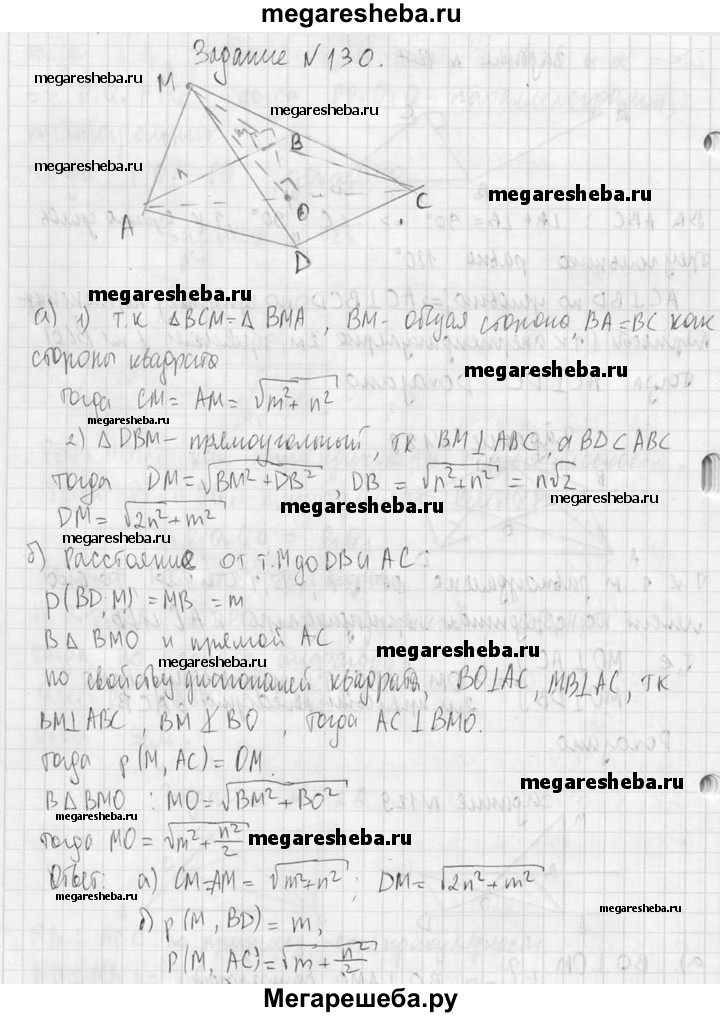 megaresheba.ru
Задание N 130.
megaresheba.ru
megaresheba.ru
megaresheba.ru
megaresheba.ru
M
m
n
B
A
O
C
D
megaresheba.ru
а) 1) т.к △BCM = △BMA , BM - общая сторона BA = BC как
стороны квадрата
megaresheba.ru
тогда CM = AM = √m²+n²
megaresheba.ru
megaresheba.ru
2) △DBM - прямоугольный, тк BM⊥ABC, а BD⊂ABC
тогда DM = √BM²+DB² , DB = √n²+n² = n√2
megaresheba.ru
megaresheba.ru
DM = √2n²+m²
б) Расстояние от т.M до DB и AC:
ρ(BD,M) = MB = m
megaresheba.ru
В△ BMO и прямой AC
megaresheba.ru
megaresheba.ru
по свойству диагоналей квадрата, BO⊥AC, MB⊥AC, тк
BM⊥ABC , BM ⊥ BO , тогда AC⊥BMO.
тогда ρ(M, AC) = OM
megaresheba.ru
В△ BMO : MO = √BM²+BO²
megaresheba.ru
тогда MO = √m²+n²/2
megaresheba.ru
Ответ: а) CM=AM = √m²+n² ; DM = √2n²+m²
megaresheba.ru
megaresheba.ru
б) ρ(M, BD) = m,
ρ(M, AC) = √m+n²/2
Мегарешеба.ру